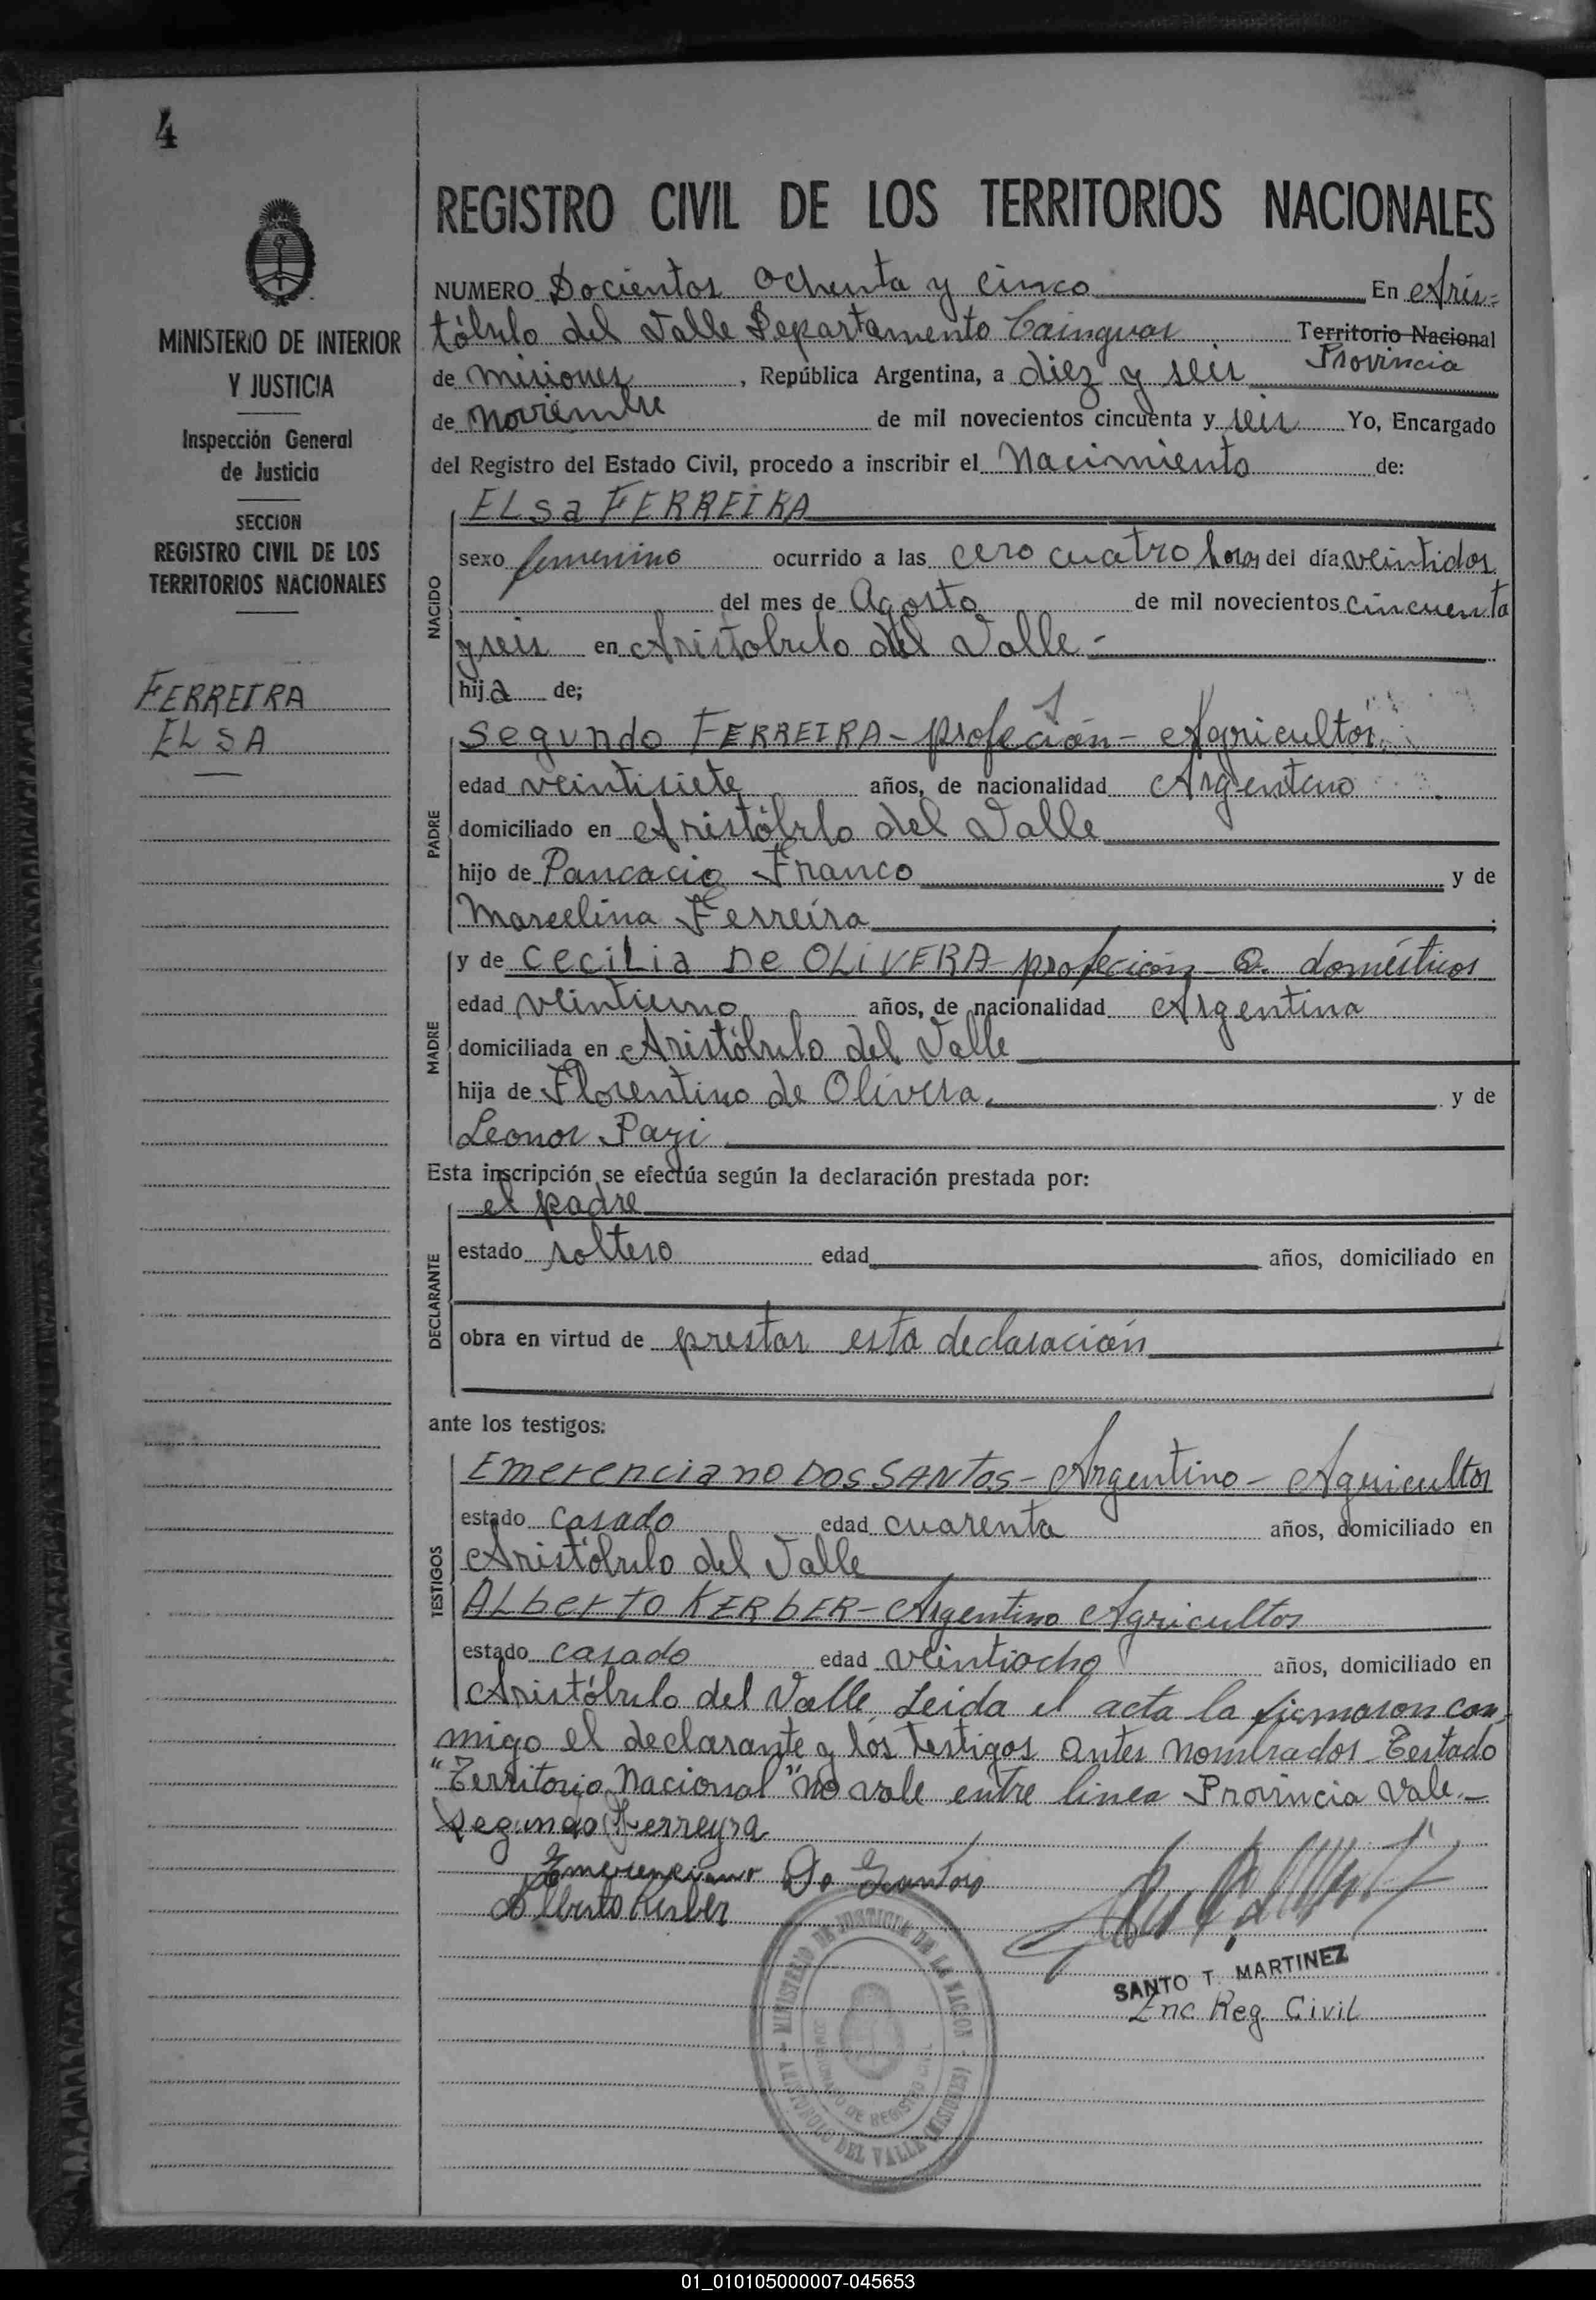 4
MINISTERIO DE INTERIOR
Y JUSTICIA
Inspección General
de Justicia
SECCION
REGISTRO CIVIL DE LOS
TERRITORIOS NACIONALES
FERREIRA
ELSA
REGISTRO CIVIL DE LOS TERRITORIOS NACIONALES
NUMERO Docientos ochenta y cinco En Aris-
tóbulo del Valle Departamento Cainguas Territorio Nacional
Provincia
de Misiones, República Argentina, a diez y seis
de Noviembre de mil novecientos cincuenta y seis Yo, Encargado
del Registro del Estado Civil, procedo a inscribir el Nacimiento de:
NACIDO
ELSa FERREIRA
sexo femenino ocurrido a las cero cuatro horas del día veintidos
del mes de Agosto de mil novecientos cincuenta
y seis en Aristobulo del Valle-
hija de;
PADRE
Segundo FERREIRA- profeción- Agricultor
edad veintisiete años, de nacionalidad Argentino
domiciliado en Aristóbulo del Valle
hijo de Pancacio Franco y de
Marcelina Ferreira
MADRE
y de CeciLia De OLiVERA profeción Q. domésticos
edad veintiuno años, de nacionalidad Argentina
domiciliada en Aristóbulo del Valle
hija de Florentino de Olivera. y de
Leonor Pazi
Esta inscripción se efectúa según la declaración prestada por:
DECLARANTE
el padre
estado soltero edad años, domiciliado en
obra en virtud de prestar esta declaración
ante los testigos:
TESTIGOS
Emerenciano DOS SANTOS- Argentino- Agricultor
estado casado edad cuarenta años, domiciliado en
Aristóbulo del Valle
ALberto KERbER- Argentino Agricultor
estado casado edad veintiocho años, domiciliado en
Aristóbulo del Valle. Leida el acta la firmaron con-
migo el declarante y los testigos antes nombrados Testado
"Territorio Nacional" no vale entre linea Provincia Vale.-
Segundo Ferreyra
Emerenciano Do Santos
Alberto Kerber
MINISTERIO DE JUSTICIA DE LA NACION
ARISTOBULO DEL VALLE (MISIONES)
SANTO T. MARTINEZ
Enc Reg. Civil
01_010105000007-045653